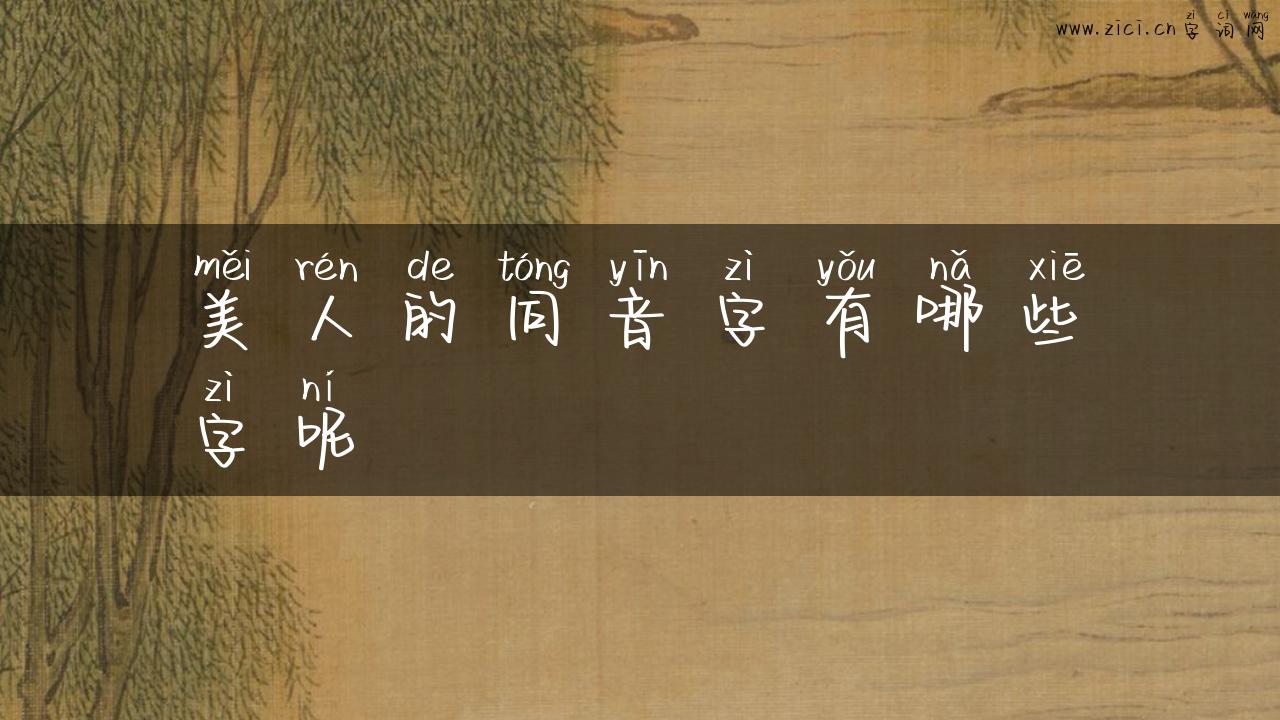 zì cí wǎng
www.zici.cn 字 词 网
měi rén de tóng yīn zì yǒu nǎ xiē
美 人 的 同 音 字 有 哪 些
zì ní
字 呢